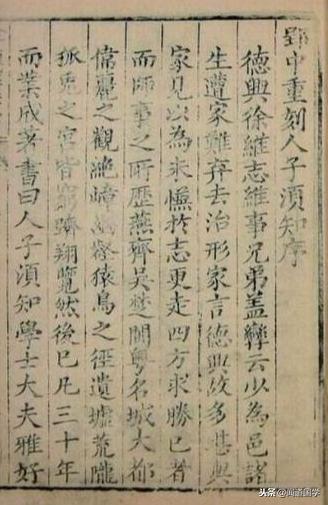 中重刻人子須知序
德興徐維志維事兄弟蓋孿云少為邑諸
生遭家難弃去治形家言德興故多堪輿
家見以為未愜於志更走四方求勝已者
而師事之所歷燕齊吳楚閩粵名城大都
偉麗之觀絕嶂壑猿鳥之徑遺墟荒隴
狐兔之宮皆窮躋翔覽然後已凡三十年
而業成著書曰人子須知學士大夫雅好
头条 @闻道国学